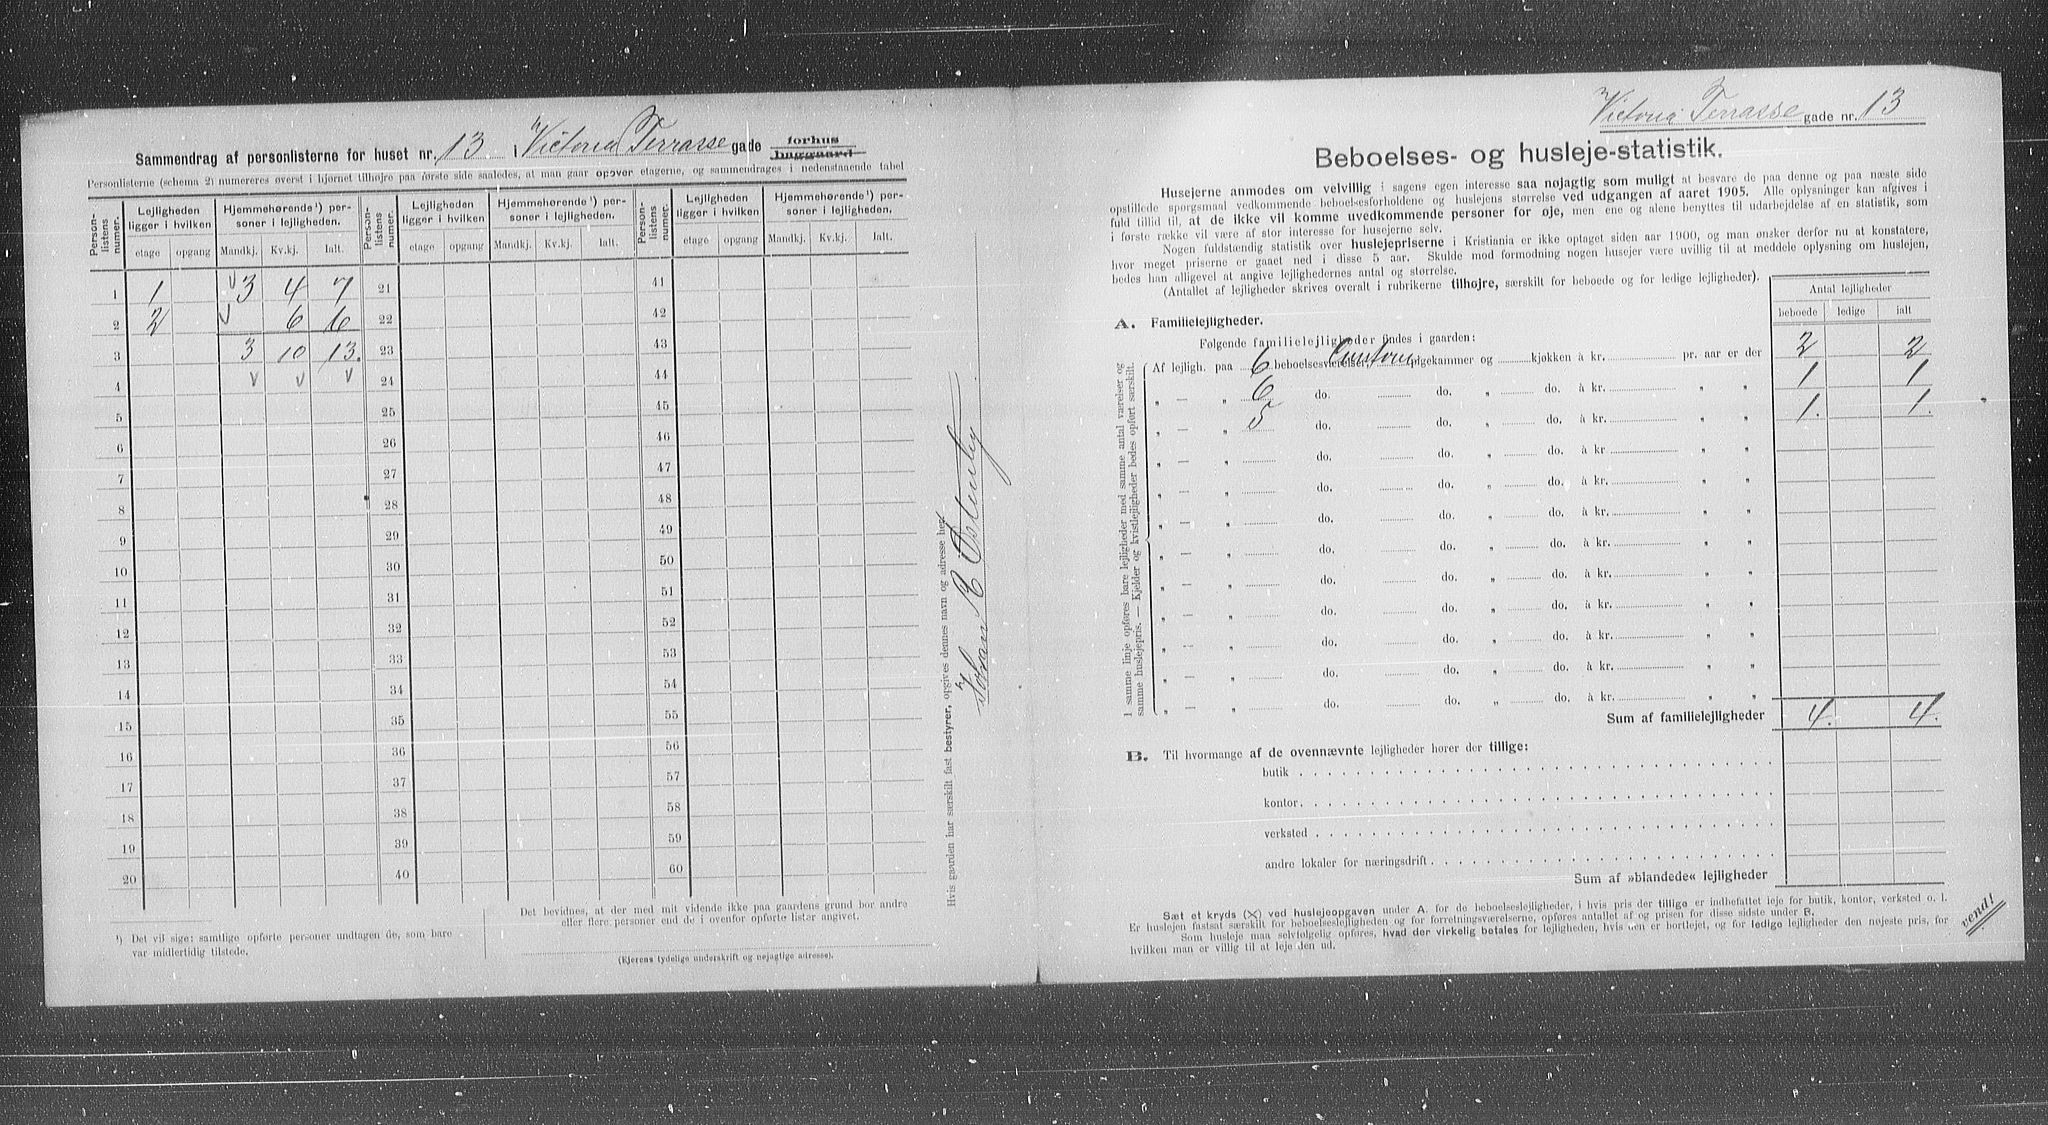 Sammendrag af personlisterne for huset nr. 13 i Victoria Terrasse gade forhus
baggaard
Personlisterne (schema 2) numereres øverst i hjørnet tilhøjre paa første side saaledes, at man gaar opover etagerne, og sammendrages i nedenstaaende tabel
Person-listens numer. Lejligheden ligger i hvilken Hjemmehørende ¹) personer i lejligheden. Person-listens numer. Lejligheden ligger i hvilken Hjemmehørende ¹) personer i lejligheden. Person-listens numer. Lejligheden ligger i hvilken Hjemmehørende ¹) personer i lejligheden.
etage opgang Mandkj. Kv.kj. Ialt. etage opgang Mandkj. Kv.kj. Ialt. etage opgang Mandkj. Kv.kj. Ialt.
1 1 v 3 4 7 21 41
2 2 v 6 6 22 42
3 3 10 13. 23 43
4 v v v 24 44
5 25 45
6 26 46
7 27 47
8 28 48
9 29 49
10 30 50
11 31 51
12 32 52
13 33 53
14 34 54
15 35 55
16 36 56
17 37 57
18 38 58
19 39 59
20 40 60
¹) Det vil sige: samtlige opførte personer undtagen de, som bare
var midlertidig tilstede.
Det bevidnes, at der med mit vidende ikke paa gaardens grund bor andre
eller flere personer end de i ovenfor opførte lister angivet.
(Ejerens tydelige underskrift og nøjagtige adresse).
Hvis gaarden har særskilt fast bestyrer, opgives dennes navn og adresse her:
Johan E Østenby
Victoria Terrasse gade nr. 13
Beboelses- og husleje-statistik.
Husejerne anmodes om velvillig i sagens egen interesse saa nøjagtig som muligt at besvare de paa denne og paa næste side
opstillede spørgsmaal vedkommende beboelsesforholdene og huslejens størrelse ved udgangen af aaret 1905. Alle oplysninger kan afgives i
fuld tillid til, at de ikke vil komme uvedkommende personer for øje, men ene og alene benyttes til udarbejdelse af en statistik, som
i første række vil være af stor interesse for husejerne selv.
Nogen fuldstændig statistik over huslejepriserne i Kristiania er ikke optaget siden aar 1900, og man ønsker derfor nu at konstatere,
hvor meget priserne er gaaet ned i disse 5 aar. Skulde mod formodning nogen husejer være uvillig til at meddele oplysning om huslejen,
bedes han alligevel at angive lejlighedernes antal og størrelse.
(Antallet af lejligheder skrives overalt i rubrikerne tilhøjre, særskilt for beboede og for ledige lejligheder).
Antal lejligheder
beboede ledige ialt
A. Familielejligheder.
Følgende familielejligheder findes i gaarden:
I samme linje opføres bare lejligheder med samme antal værelser og
samme huslejepris. — Kjelder og kvistlejligheder bedes opført særskilt.
Af lejligh. paa 6 beboelsesværelser, pigekammer og kjøkken à kr. pr. aar er der 2 2
„ — „ 6 do. do. „ do. à kr. „ „ 1 1
„ — „ 5 do. do. „ do. à kr. „ „ 1. 1.
„ — „ do. do. „ do. à kr. „ „
„ — „ do. do. „ do. à kr. „ „
„ — „ do. do. „ do. à kr. „ „
„ — „ do. do. „ do. à kr. „ „
„ — „ do. do. „ do. à kr. „ „
„ — „ do. do. „ do. à kr. „ „
„ — „ do. do. „ do. à kr. „ „
„ — „ do. do. „ do. à kr. „ „
„ — „ do. do. „ do. à kr. „ „
Sum af familielejligheder 4. 4.
B. Til hvormange af de ovennævnte lejligheder hører der tillige:
butik
kontor
verksted
andre lokaler for næringsdrift
Sum af »blandede« lejligheder
Sæt et kryds (X) ved huslejeopgaven under A. for de beboelseslejligheder, i hvis pris der tillige er indbefattet leje for butik, kontor, verksted o. l.
Er huslejen fastsat særskilt for beboelseslejligheden og for forretningsværelserne, opføres antallet af og prisen for disse sidste under B.
Som husleje maa selvfølgelig opføres, hvad der virkelig betales for lejligheden, hvis den er bortlejet, og for ledige lejligheder den nøjeste pris, for
hvilken man er villig til at leje den ud.
vend!